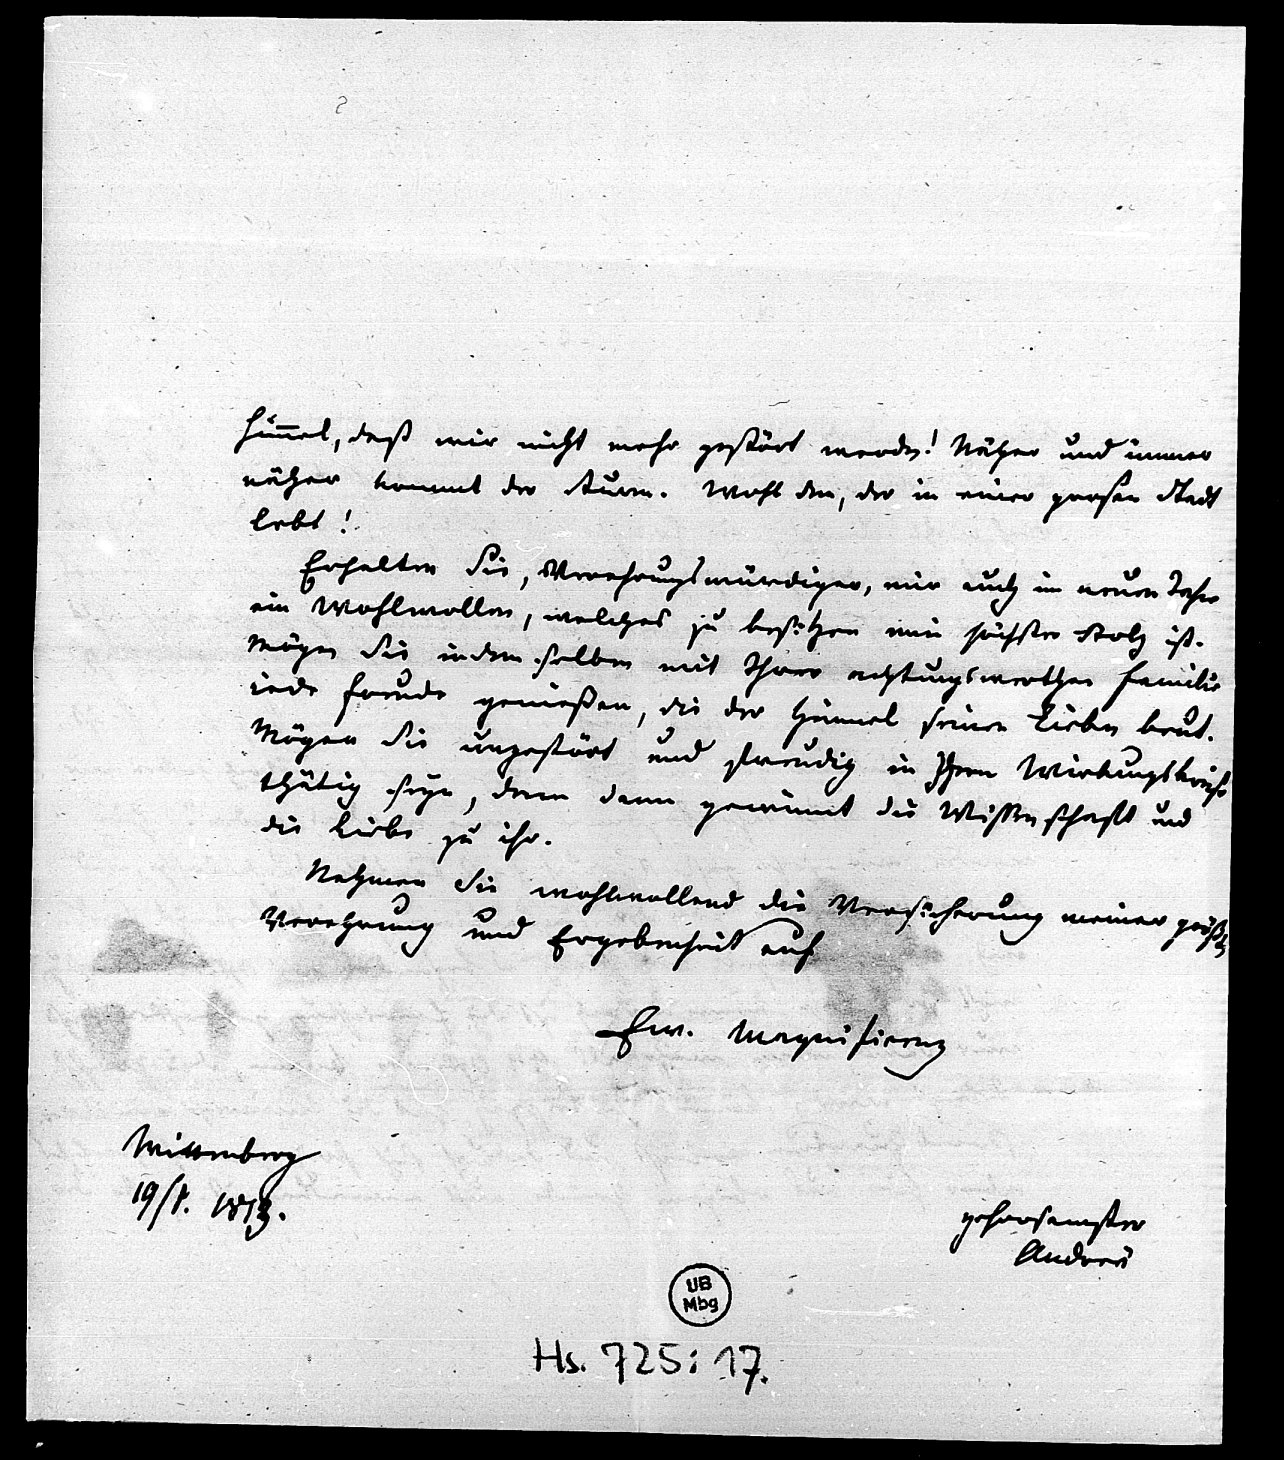 Himmel, daß wir nicht mehr gestört werden! Näher und immer
näher kommt der Sturm. Wohl dem, der in einer großen Stadt
lebt!
Erhalten Sie, Verehrungswürdiger, mir auch im neuen Jahre
ein Wohlwollen, welches zu besitzen mein höchster Stolz ist.
Mögen Sie in demselben mit Ihrer achtungswerthen Familie
jede Freude genießen, die der Himmel seinen Lieben beut.
Mögen Sie ungestört und freudig in Ihrem Wirkungskreise
thätig seyn, denn dann gewinnt die Wissenschaft und
die Liebe zu ihr.
Nehmen Sie wohlwollend die Versicherung meiner größten
Verehrung und Ergebenheit auf
Ew. Magnificenz
Wittenberg
19/1. 1813.
gehorsamster
Andreä
UB
Mbg
Hs. 725: 17.